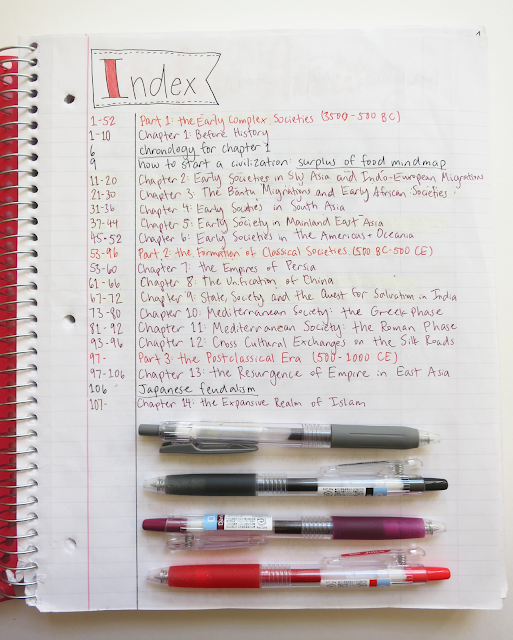 1
Index
1-52 Part 1: the Early Complex Societies (3500-500 BC)
1-10 Chapter 1: Before History
6 chronology for chapter 1
9 how to start a civilization: surplus of food mindmap
11-20 Chapter 2: Early Societies in SW Asia and Indo-European Migrations
21-30 Chapter 3: The Bantu Migrations and Early African Societies
31-36 Chapter 4: Early Societies in South Asia
37-44 Chapter 5: Early Society in Mainland East Asia
45-52 Chapter 6: Early Societies in the Americas + Oceania
53-96 Part 2: the Formation of Classical Societies (500 BC-500 CE)
53-60 Chapter 7: the Empires of Persia
61-66 Chapter 8: The Unification of China
67-72 Chapter 9: State, Society and the Quest for Salvation in India
73-80 Chapter 10: Mediterranean Society: the Greek Phase
81-92 Chapter 11: Mediterranean Society: the Roman Phase
93-96 Chapter 12: Cross Cultural Exchanges on the Silk Roads
97- Part 3: the Postclassical Era (500-1000 CE)
97-106 Chapter 13: the Resurgence of Empire in East Asia
106 Japanese feudalism
107- Chapter 14: the Expansive Realm of Islam